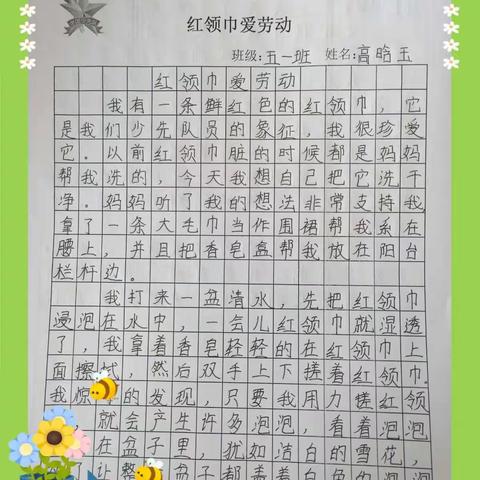 红领巾爱劳动
班级:五一班 姓名:高晗玉
红领巾爱劳动
我有一条鲜红色的红领巾，它
是我们少先队员的象征，我很珍爱
它。以前红领巾脏的时候都是妈妈
帮我洗的，今天我想自己把它洗干
净。妈妈听了我的想法非常支持我，
拿了一条大毛巾当作围裙帮我系在
腰上，并且把香皂盒帮我放在阳台
栏杆边。
我打来一盆清水，先把红领巾
浸泡在水中，一会儿红领巾就湿透
了，我拿着香皂轻轻的在红领巾上
面擦拭，然后双手上下搓着红领巾.
我惊 的发现，只要我用力搓红领
就会产生许多泡泡，看着泡泡
在盆子里，犹如洁白的雪花，
让整 盆子都 着白色的泡泡